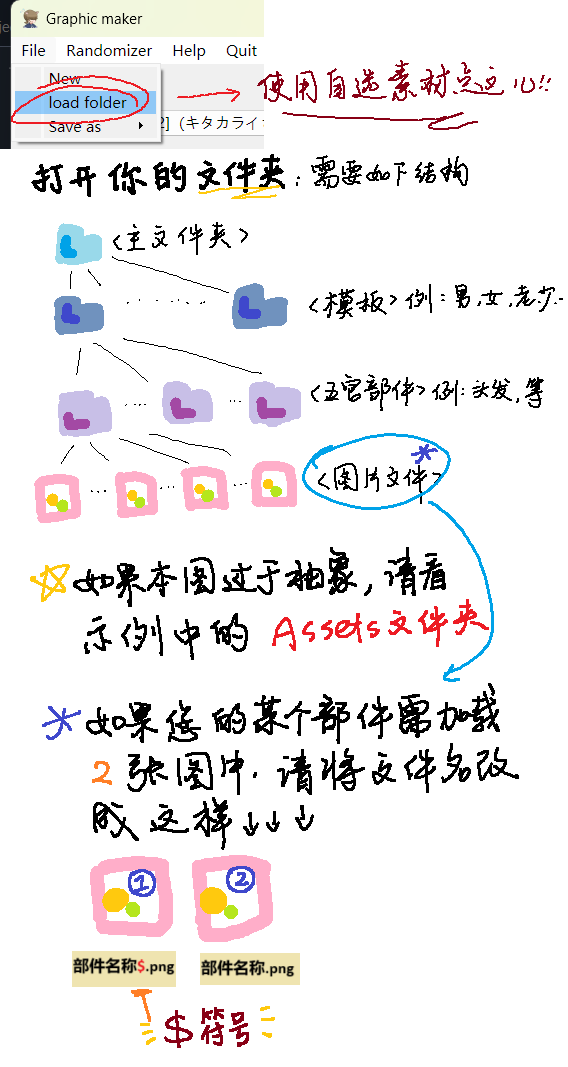 Graphic maker
File Randomizer Help Quit
New
load folder
Save as
2] (キタカライ
使用自选素材点这儿!!
打开你的文件夹: 需要如下结构
<主文件夹>
<模板> 例: 男, 女, 老少..
<五官部件> 例: 头发, 等
<图片文件> *
☆ 如果本图过于抽象, 请看
示例中的 Assets文件夹
* 如果您的某个部件需加载
2 张图片. 请将文件名改
成 这样 ↓↓↓
① ②
部件名称$.png 部件名称.png
$ 符号